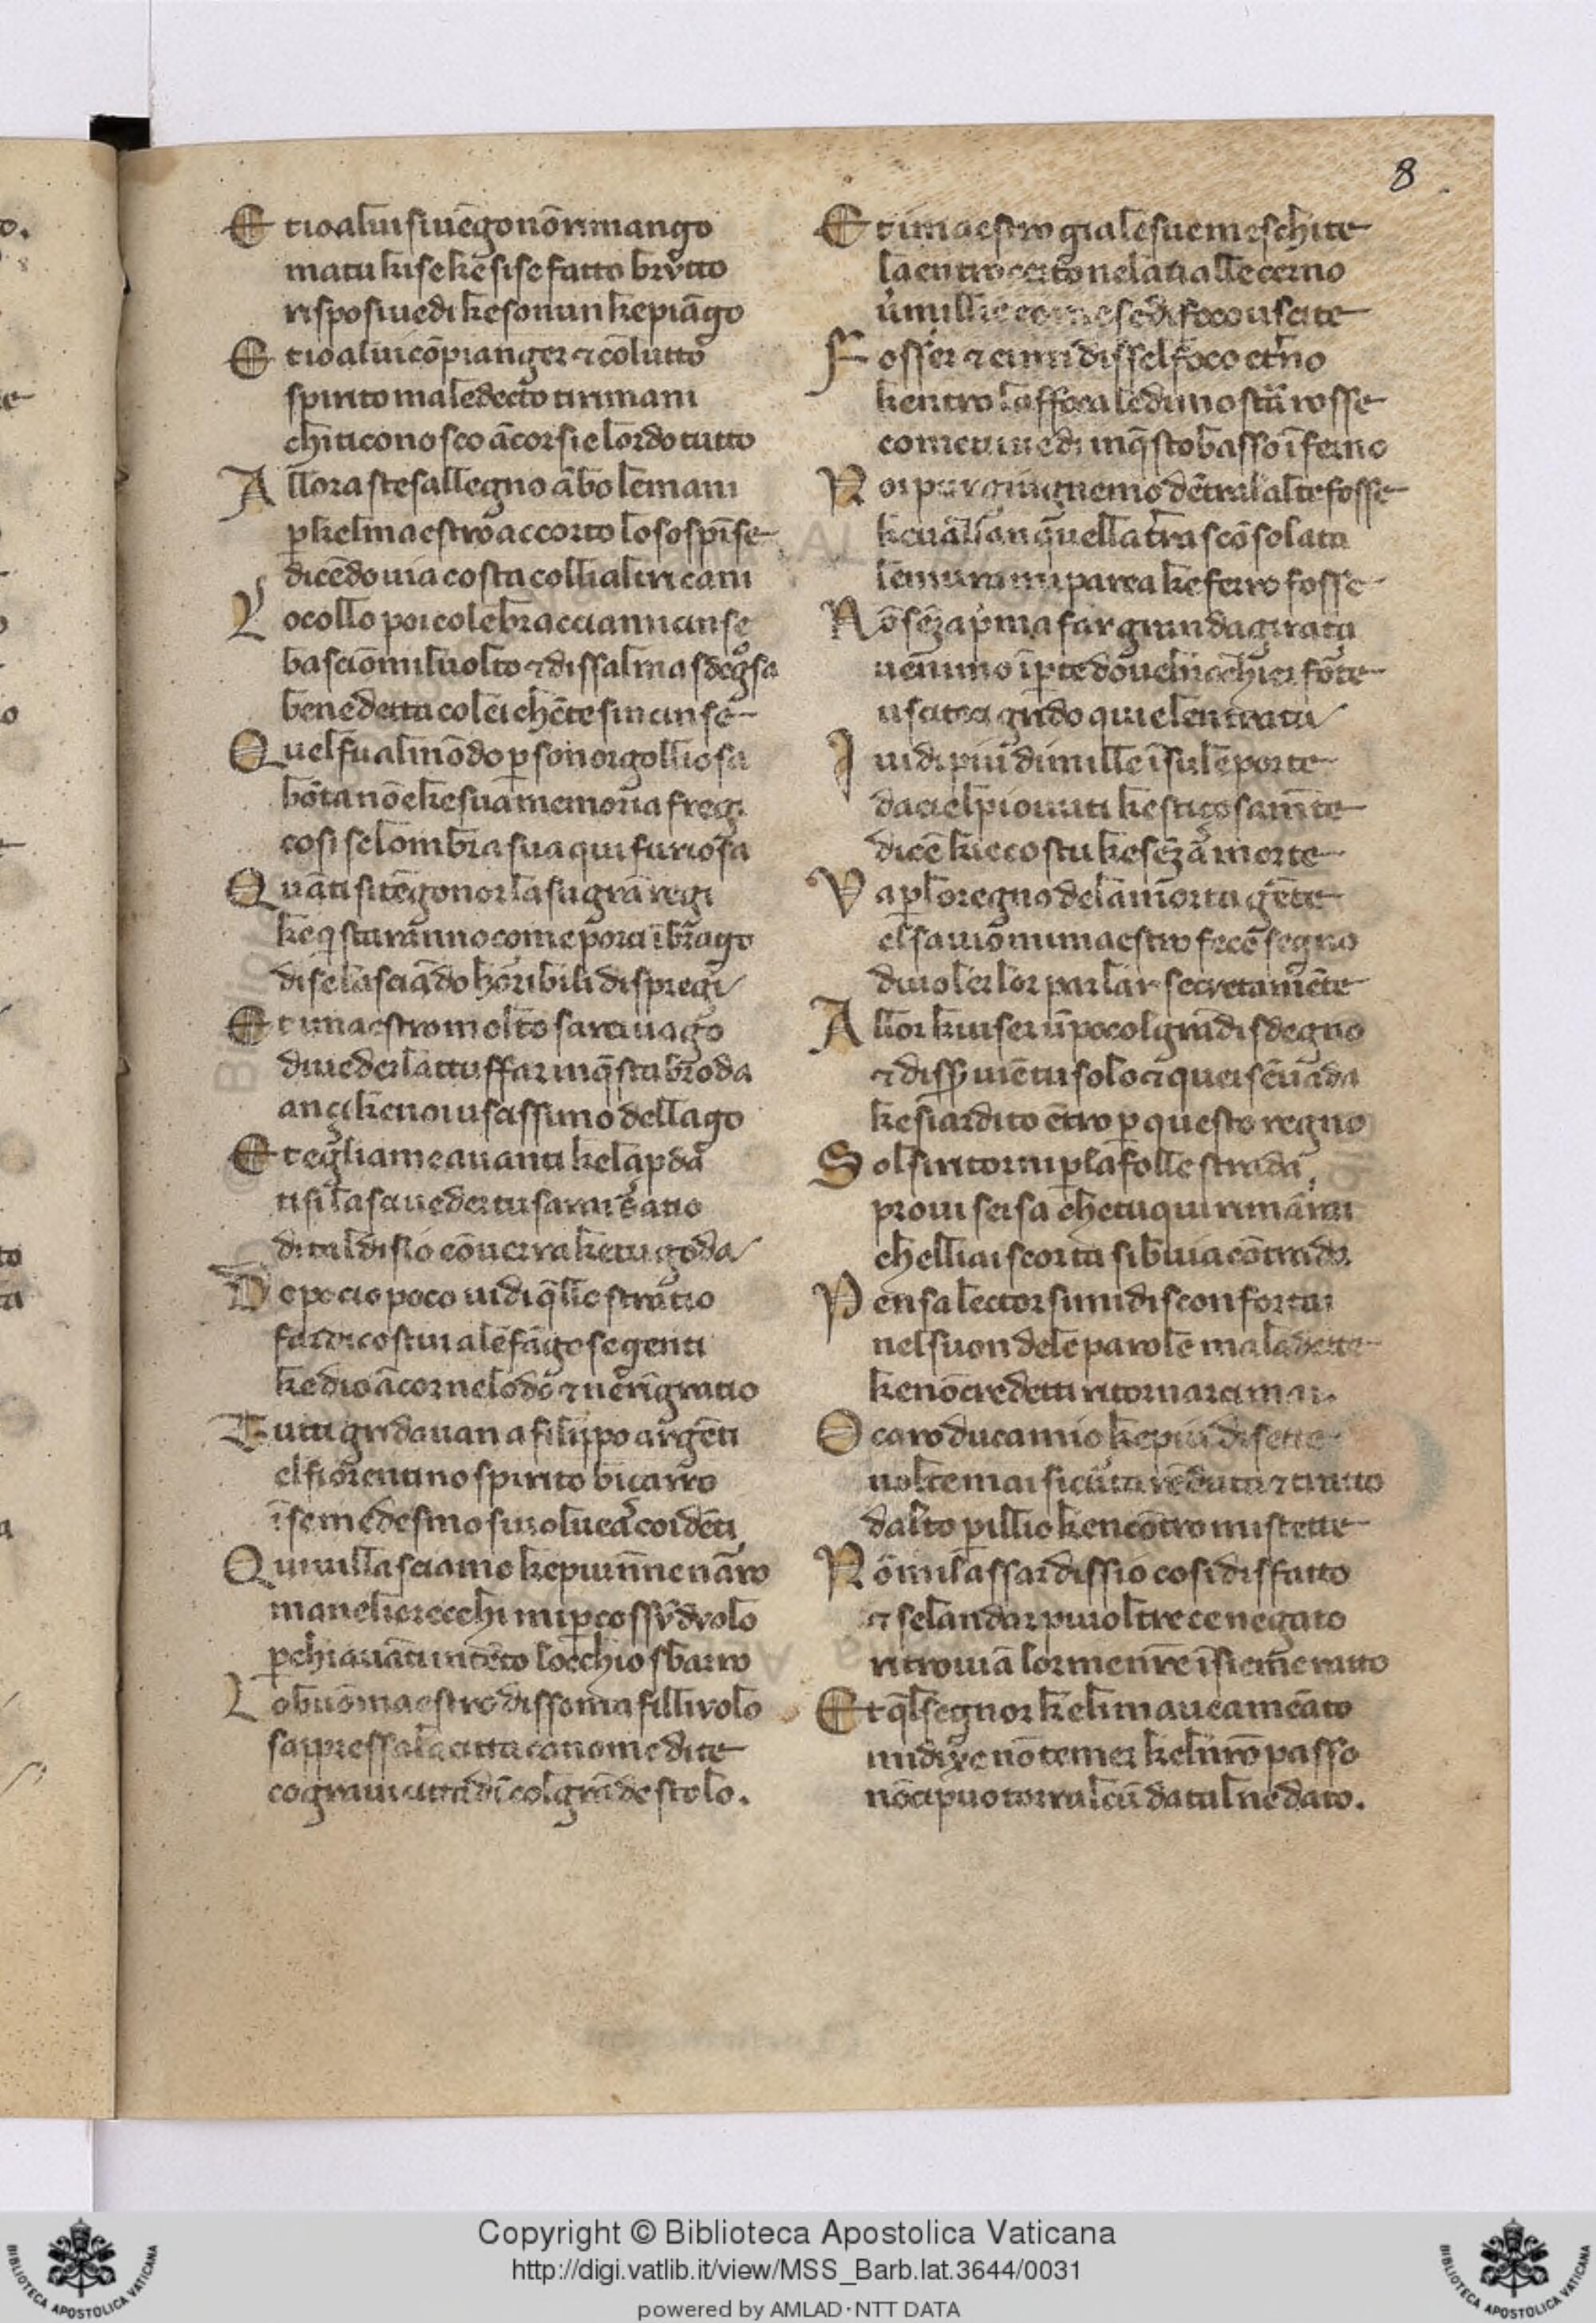 8
Et io a lui si uēgo nō rimango
ma tu ki se ke si se fatto brutto
rispos i uedi ke son un ke piāgo
Et io a lui cō pianger ⁊ cō lutto
spirito maledecto ti rimani
chi ti conosco ācor sie lordo tutto
Allora stese al legno ābo le mani
ꝑ kel maestro accorto lo sospīse
dicēdo uia costa colli altri cani
Lo collo poi cole braccia mi cinse
basciōmi l uolto ⁊ diss alma sdegͦsa
benedetta colei ch ē te sincinse
Quel fu al mōdo ꝑsona orgolliosa
bōta nō e ke sua memoria fregi
cosi se lombra sua qui furiosa
Quāti si tēgon or la su grā regi
ke q̄ starāno come porci ī brago
di se lasciādo horribili dispregi
Et i maestro molto sarei uago
di ueder lattuffar in q̄sta broda
anci ke noi uscissimo del lago
Et egli a me auanti ke la ꝓda
ti si lasci ueder tu sarai satio
di tal disio cōuerra ke tu goda
Dopo cio poco uidi q̄llo stratio
far di costui ale fāgose genti
ke dio ācor ne lodo ⁊ ne rīgratio
Tutti gridauan a filippo argēti
el fiorentino spirito biçarro
ī se medesmo si uoluea coi dēti
Quiui il lasciamo ke piu nō ne narro
ma neli orecchi mi ꝑcosse ū dolo
ꝑ chi auāti intēto locchio sbarro
Lo buō maestro disse oma fillivolo
sappressa la citta ca nome dite
co graui cittadī col grāde stolo.
Et i maestro gia le sue meschite
la entro certo nela ualle cerno
ūmillie come se di foco uscite
Fosser ⁊ ei mi disse l foco etno
kentro laffoca le dimostra rosse
come tu uedi in q̄sto basso īferno
Noi pur giugnemo dētral alte fosse
ke uallan quella terra scōsolata
le mura mi parea ke ferro fosse
Nō sēza pͥma far grande agirata
uenimo ī ꝑte doue l nochier forte
usciteci grido qui e lentrata
I uidi piu di mille ī sule porte
da ciel piouuti ke stiçosamēte
dicē kie costu ke sēza morte
Va ꝑ lo regno dela morta gēte
el sauio mi maestro fece segno
di uoler lor parlar secretamēte
Allor kiuser ū poco l grā disdegno
⁊ disser uiē tu solo ⁊ quei sē uada
ke si ardito ētro ꝑ questo regno
Sol si ritorni ꝑ la folle strada
proui sei sa che tu qui rimārai
chelli ai scorta si buia cōtrada
Pensa lector si mi disconfortai
nel suon dele parole maladette
ke nō credetti ritornarci mai
O caro duca mio ke piu di sette
uolte mai sicurta rēduta ⁊ tratto
dalto ꝑillio kencōtro mi stette
Nō mi lassar dissio cosi disfatto
⁊ se landar piu oltre ce negato
ritrouiā lorme nr̄e īsieme ratto
Et q̄l segnor ke li mauea menato
mi dixe nō temer kel nr̄o passo
nō ci puo torr alcū da tal ne dato.
Copyright © Biblioteca Apostolica Vaticana
http://digi.vatlib.it/view/MSS_Barb.lat.3644/0031
powered by AMLAD·NTT DATA